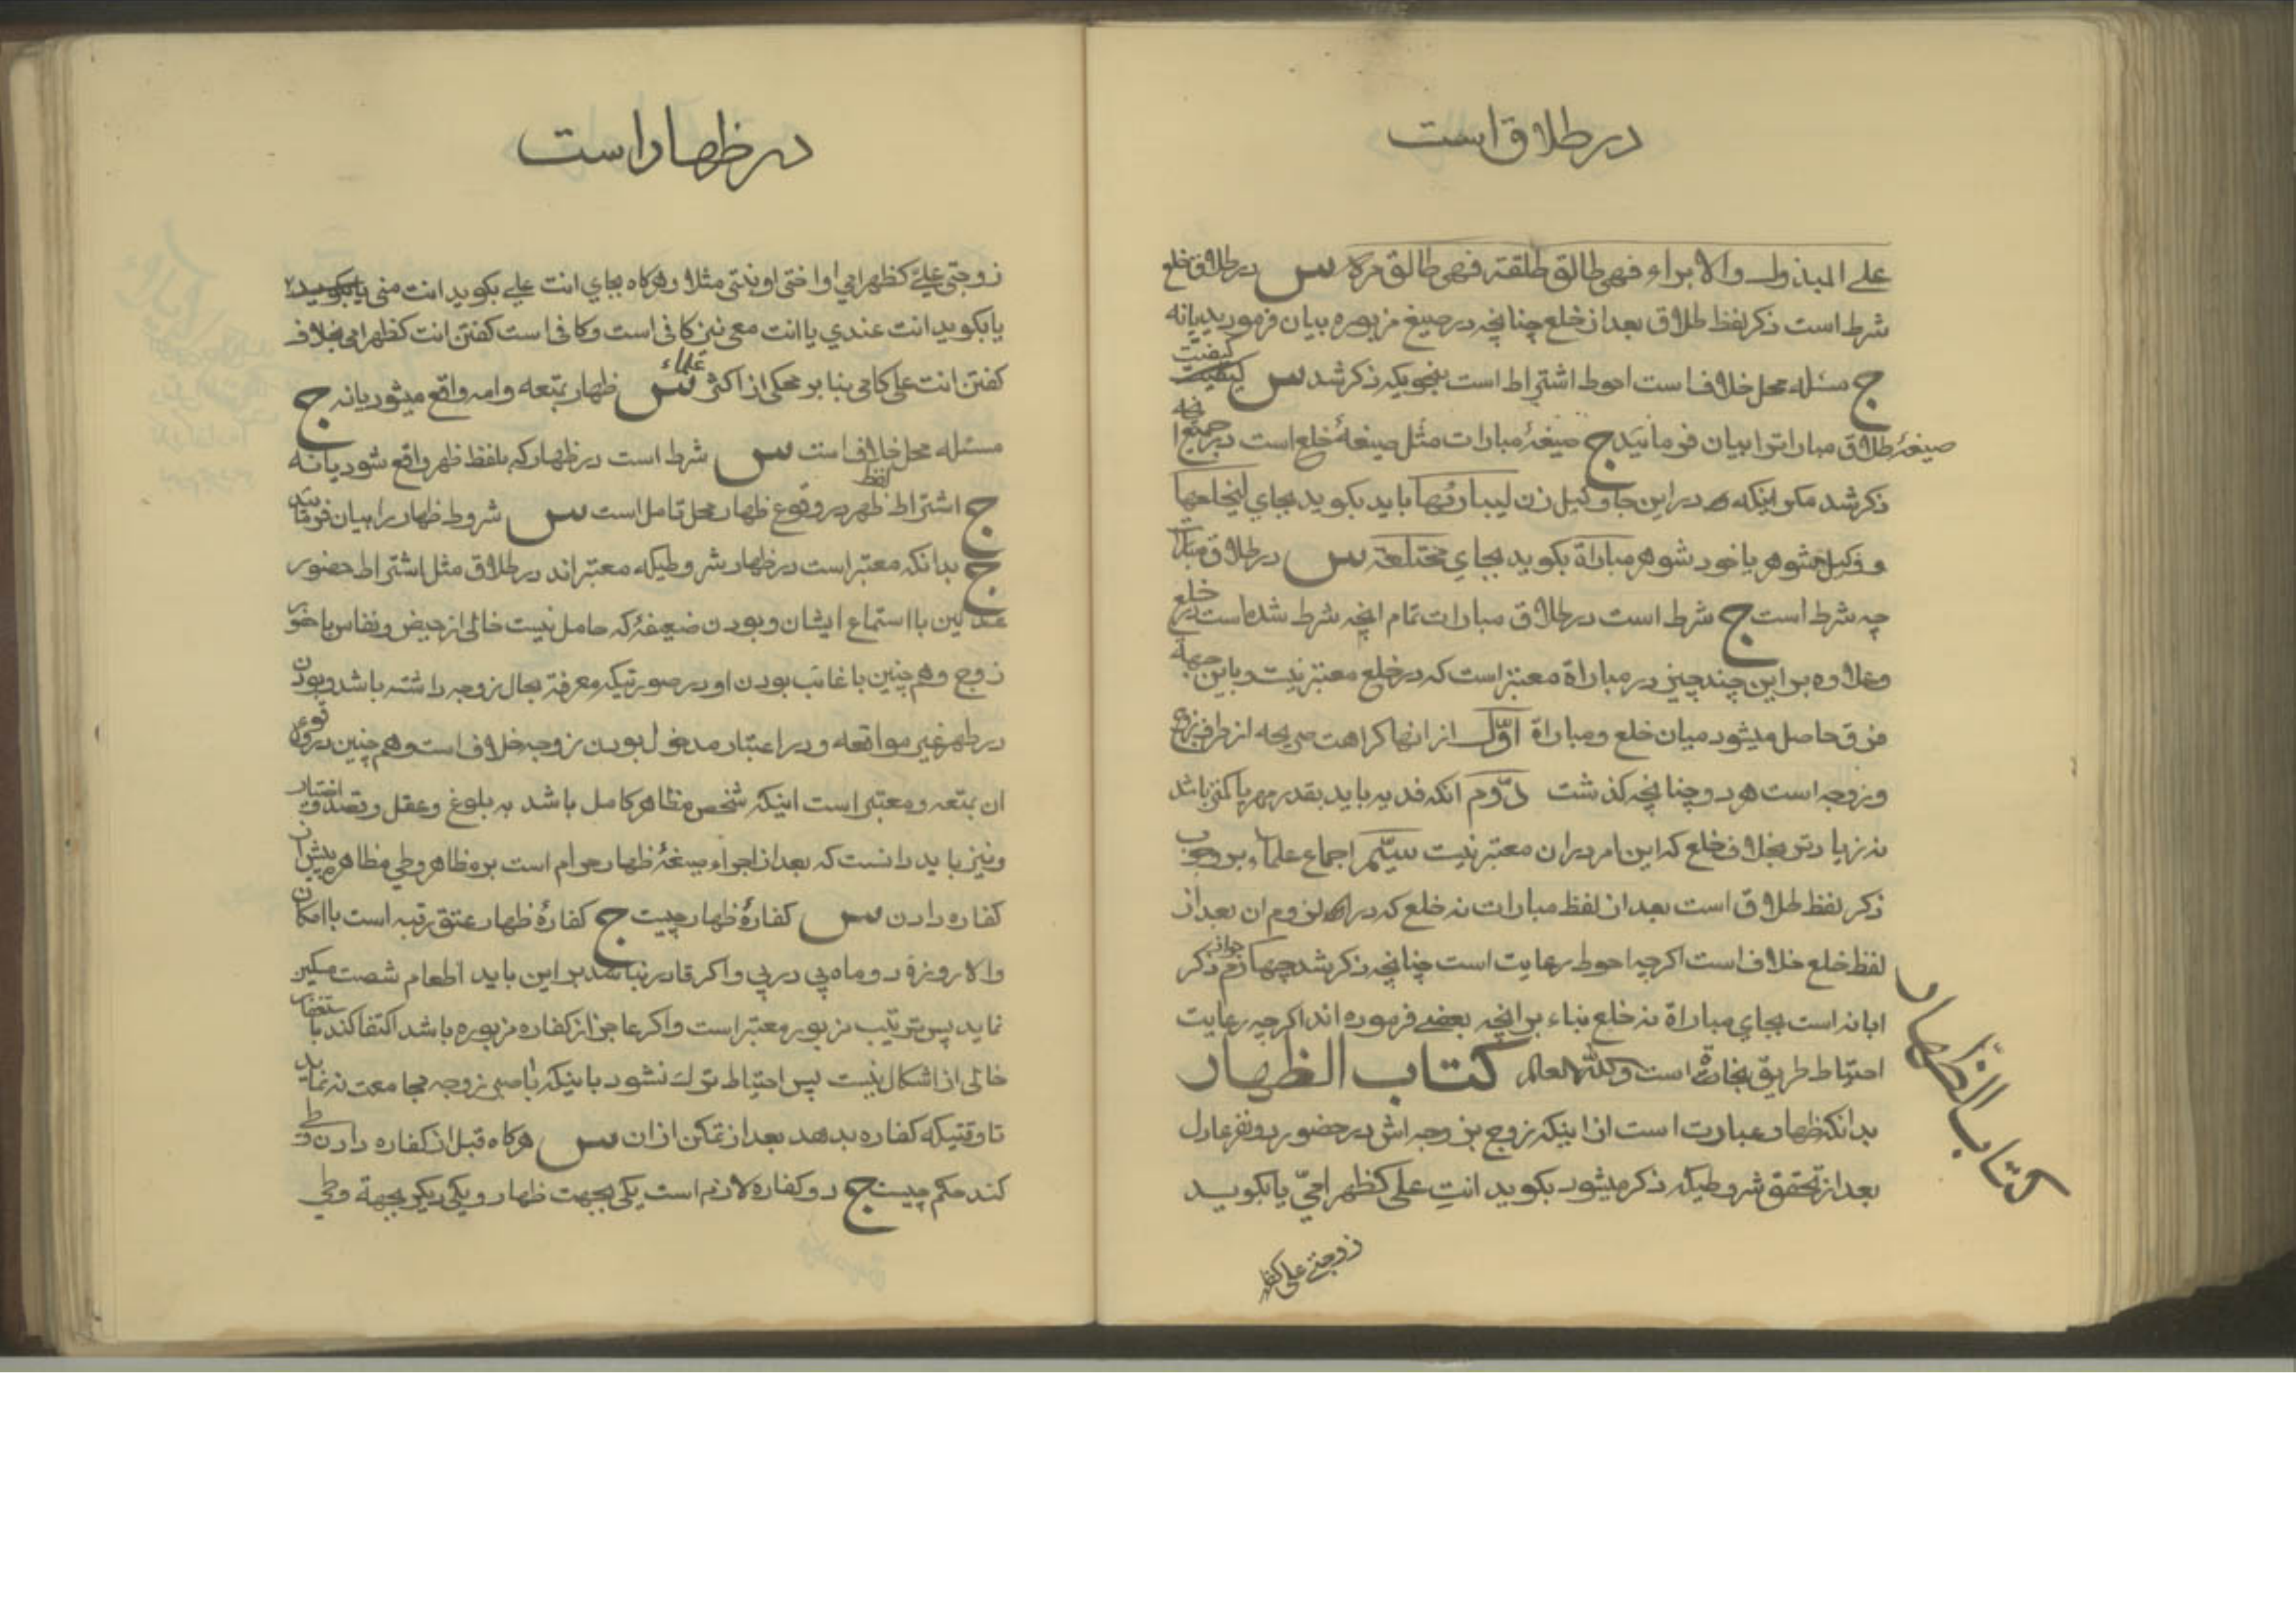 در طلاق است
علی المبذول والابراء فهی طالق طلقة فهی طالق مرة س در طلاق خلع
شرط است ذکر لفظ طلاق بعد از خلع چنانچه در صیغ مزبوره بیان فرمودید یا نه
ج مسئله محل خلاف است احوط اشتراط است بنحویکه ذکر شد س کیفیت
صیغهٔ طلاق مبارات را بیان فرمائید ج صیغهٔ مبارات مثل صیغهٔ خلع است در جمیع
ذکر شد مکر اینکه در این جا وکیل زن لیبارئها باید بکوید بجای لیخلعها
و وکیل شوهر یا خود شوهر مباراة بکوید بجای مختلعة س در طلاق مبارا
چه شرط است ج شرط است در طلاق مبارات تمام انچه شرط شده است در خلع
وعلاوه بر این چند چیز در مباراة معتبر است که در خلع معتبر نیست و باین جهة
فرق حاصل میشود میان خلع ومباراة اوّل از انها کراهت صریحه از طرف زوج
و زوجه است هر دو چنانچه کذشت دوّم انکه فدیه باید بقدر مهر یا کمتر باشد
نه زیادتر بخلاف خلع که این امر در ان معتبر نیست سیّم اجماع علماء بر وجوب
ذکر لفظ طلاق است بعد از لفظ مبارات نه خلع که در لزوم ان بعد از
لفظ خلع خلاف است اکرچه احوط رعایت است چنانچه ذکر شد چهارم جواز ذکر
ابانه است بجای مباراة نه خلع بناء بر انچه بعضی فرموده اند اکرچه رعایت
احتیاط طریق نجاة است والله العالم کتاب الظهار
بدانکه ظهار عبارت است از اینکه زوج بزوجه اش در حضور دو نفر عادل
بعد از تحقق شروطیکه ذکر میشود بکوید انتِ علی کظهر امیّ یا بکوید
کتاب الظهار
زوجتی علی کظهر
در ظهار است
زوجتی علیّ کظهر امی او اختی او بنتی مثلا وهرکاه بجای انت علی بکوید انت منی یا بکوید
یا بکوید انت عندی یا انت معی نیز کافی است وکافی است کفتن انت کظهر امی بخلاف
کفتن انت علی کامی بنا بر محکی از اکثر علماء س ظهار بمتعه وامه واقع میشود یا نه ج
مسئله محل خلاف است س شرط است در ظهار که بلفظ ظهر واقع شود یا نه
ج اشتراط لفظ ظهر در وقوع ظهار محل تامل است س شروط ظهار را بیان فرمائید
ج بدانکه معتبر است در ظهار شروطیکه معتبر اند در طلاق مثل اشتراط حضور
عدلین با استماع ایشان وبودن ضعیفهٔ که حامل نیست خالی از حیض ونفاس با حضور
زوج وهم چنین با غائب بودن او در صورتیکه معرفة بحال زوجه داشته باشد وبودن
در طهر غیر مواقعه ودر اعتبار مدخول بودن زوجه خلاف است وهم چنین در وقوع
ان بمتعه ومعتبر است اینکه شخص مظاهر کامل باشد به بلوغ وعقل وقصد واختیار
ونیز باید دانست که بعد از اجراء صیغهٔ ظهار حرام است بر مظاهر وطی مظاهره پیش از
کفاره دادن س کفارهٔ ظهار چیست ج کفارهٔ ظهار عتق رقبه است با امکان
والا روزهٔ دو ماه پی در پی واکر قادر نباشد بر این باید اطعام شصت مسکین
نماید پس ترتیب مزبور معتبر است واکر عاجز از کفاره مزبوره باشد اکتفا کند باستغفار
خالی از اشکال نیست پس احتیاط ترک نشود باینکه با زوجه مجامعت نه نماید
تا وقتیکه کفاره بدهد بعد از تمکن از ان س هرکاه قبل از کفاره دادن وطی
کند حکم چیست ج دو کفاره لازم است یکی بجهت ظهار ویکی دیکر بجهة وطی